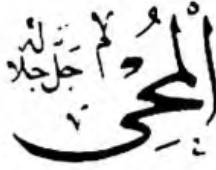 المحيى جل جلاله